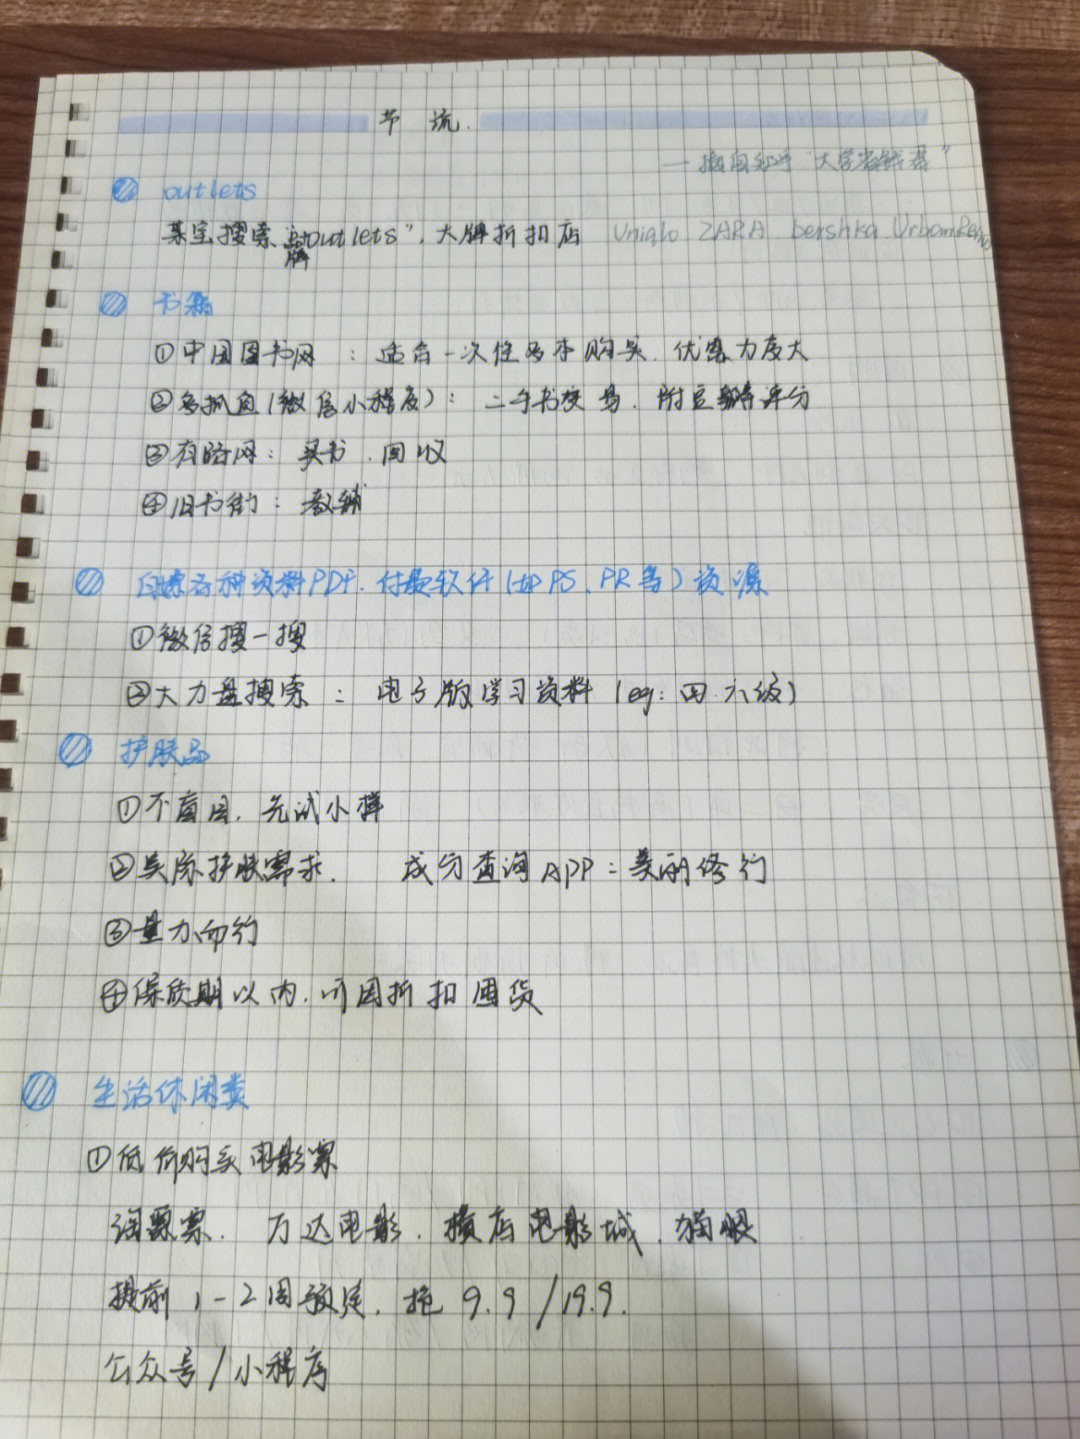 节流.
—摘自知乎“大学省钱君”
outlets
某宝搜索“品牌outlets”，大牌折扣店 Uniqlo ZARA bershka UrbanRevivo
书籍
①中国图书网：适合一次性多本购买.优惠力度大
②多抓鱼(微信小程序)：二手书交易.附豆瓣评分
③有路网：买书.回收
④旧书街：教辅
白嫖各种资料PDF.付费软件(如PS.PR等)资源
①微信搜一搜
②大力盘搜索：电子版学习资料(eg:四.六级)
护肤品
①不盲目,先试小样
②实际护肤需求. 成分查询APP：美丽修行
③量力而行
④保质期以内.可因折扣囤货
生活休闲类
①低价购买电影票
淘票票.万达电影.横店电影城.猫眼
提前1-2周预定.抢9.9/19.9.
公众号/小程序